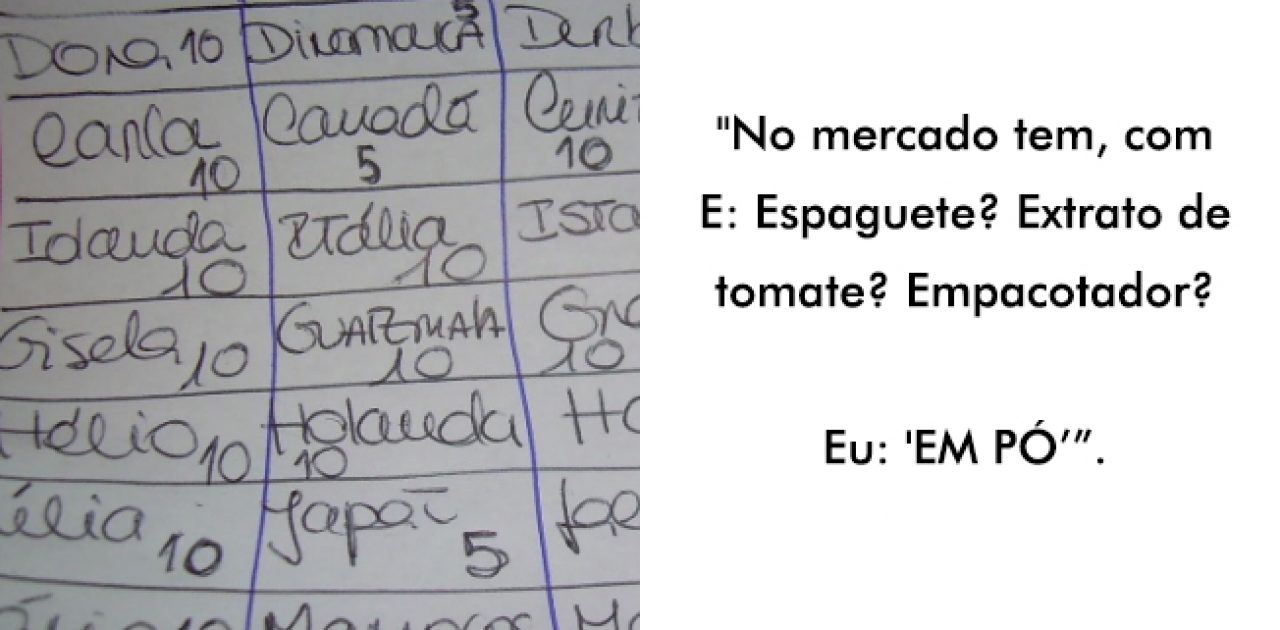 Dora, 10 Dinamarca
5
Carla 10 Canadá 5
10
Idauda 10 Itália 10
Gisela 10 GUATEMALA 10
10
Hélio 10 Holanda 10
élia 10 Japão 5
"No mercado tem, com
E: Espaguete? Extrato de
tomate? Empacotador?
Eu: 'EM PÓ'”.